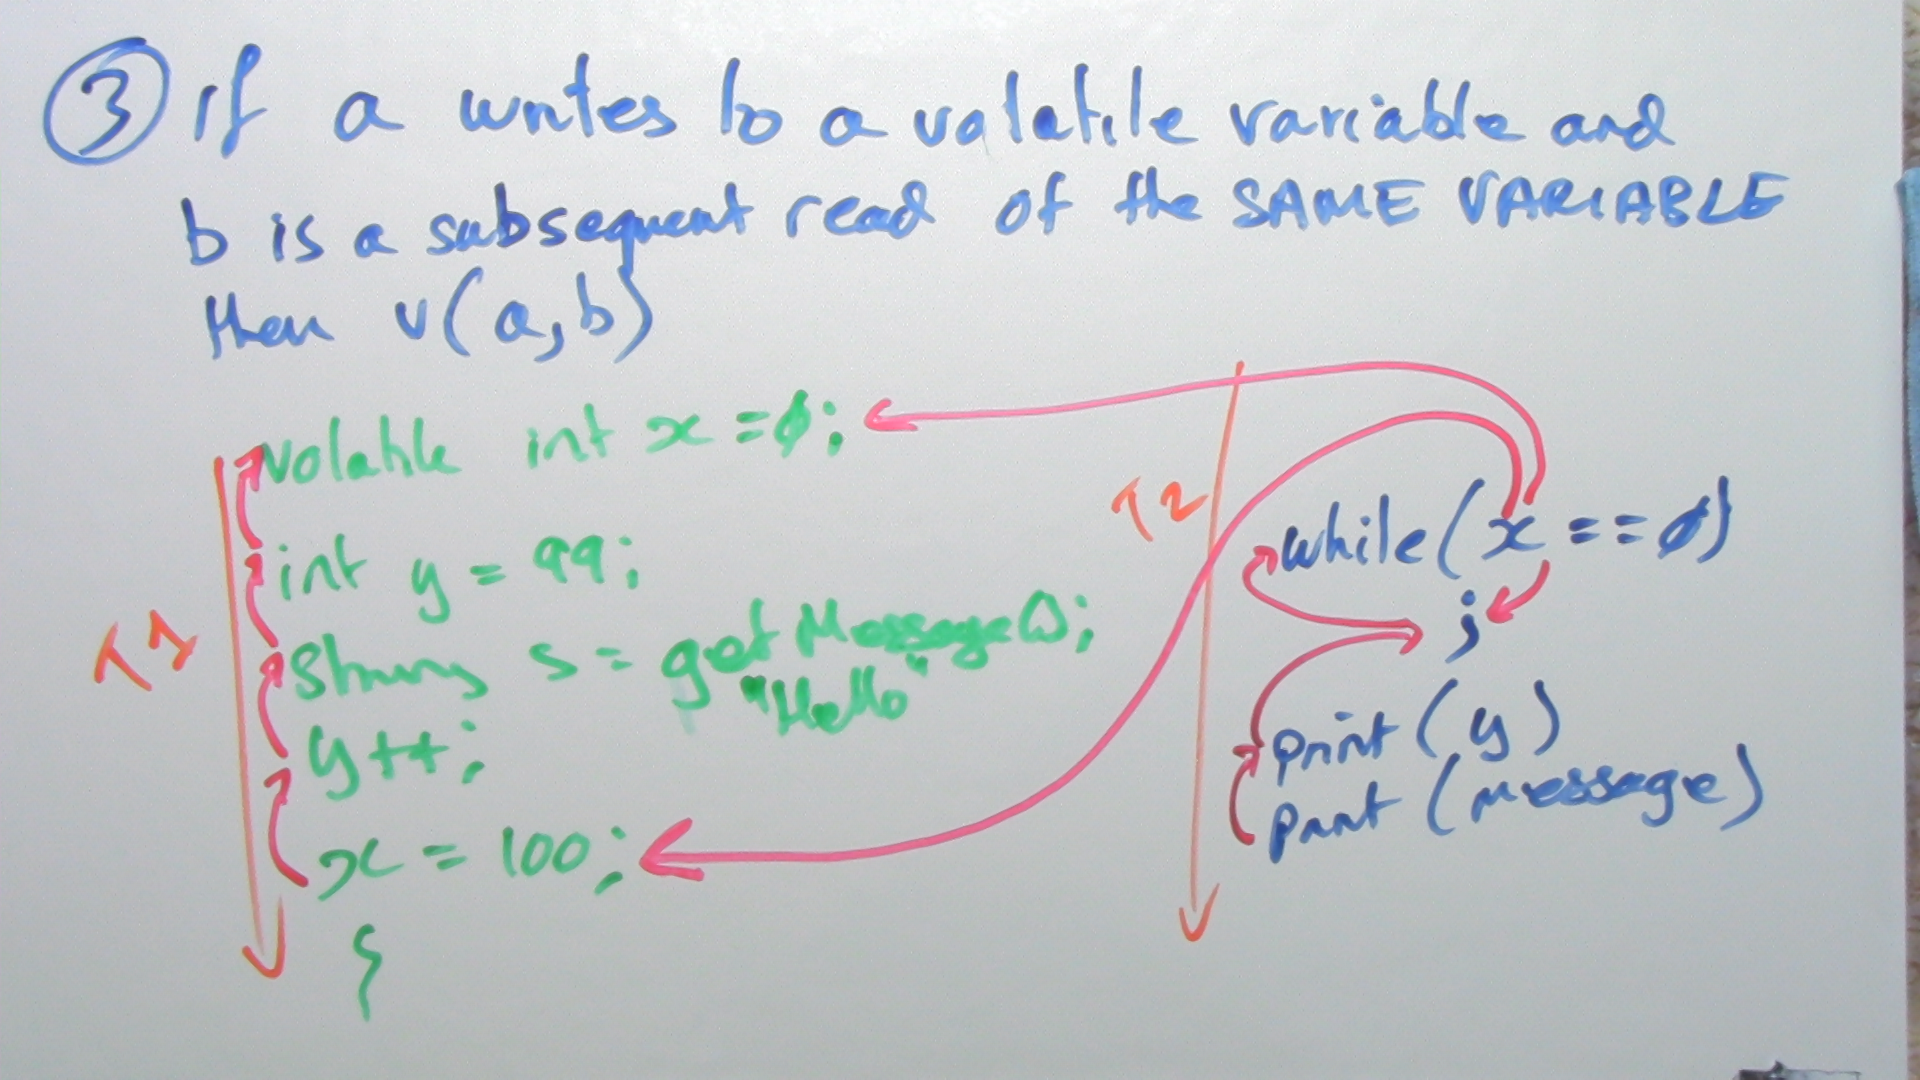 ③ if a writes to a volatile variable and
b is a subsequent read of the SAME VARIABLE
then v(a,b)
volatile int x = 0;
int y = 99;
String s = getMessage();
"Hello"
y++;
x = 100;
{
T1
T2
while(x == 0)
;
print(y)
print(message)